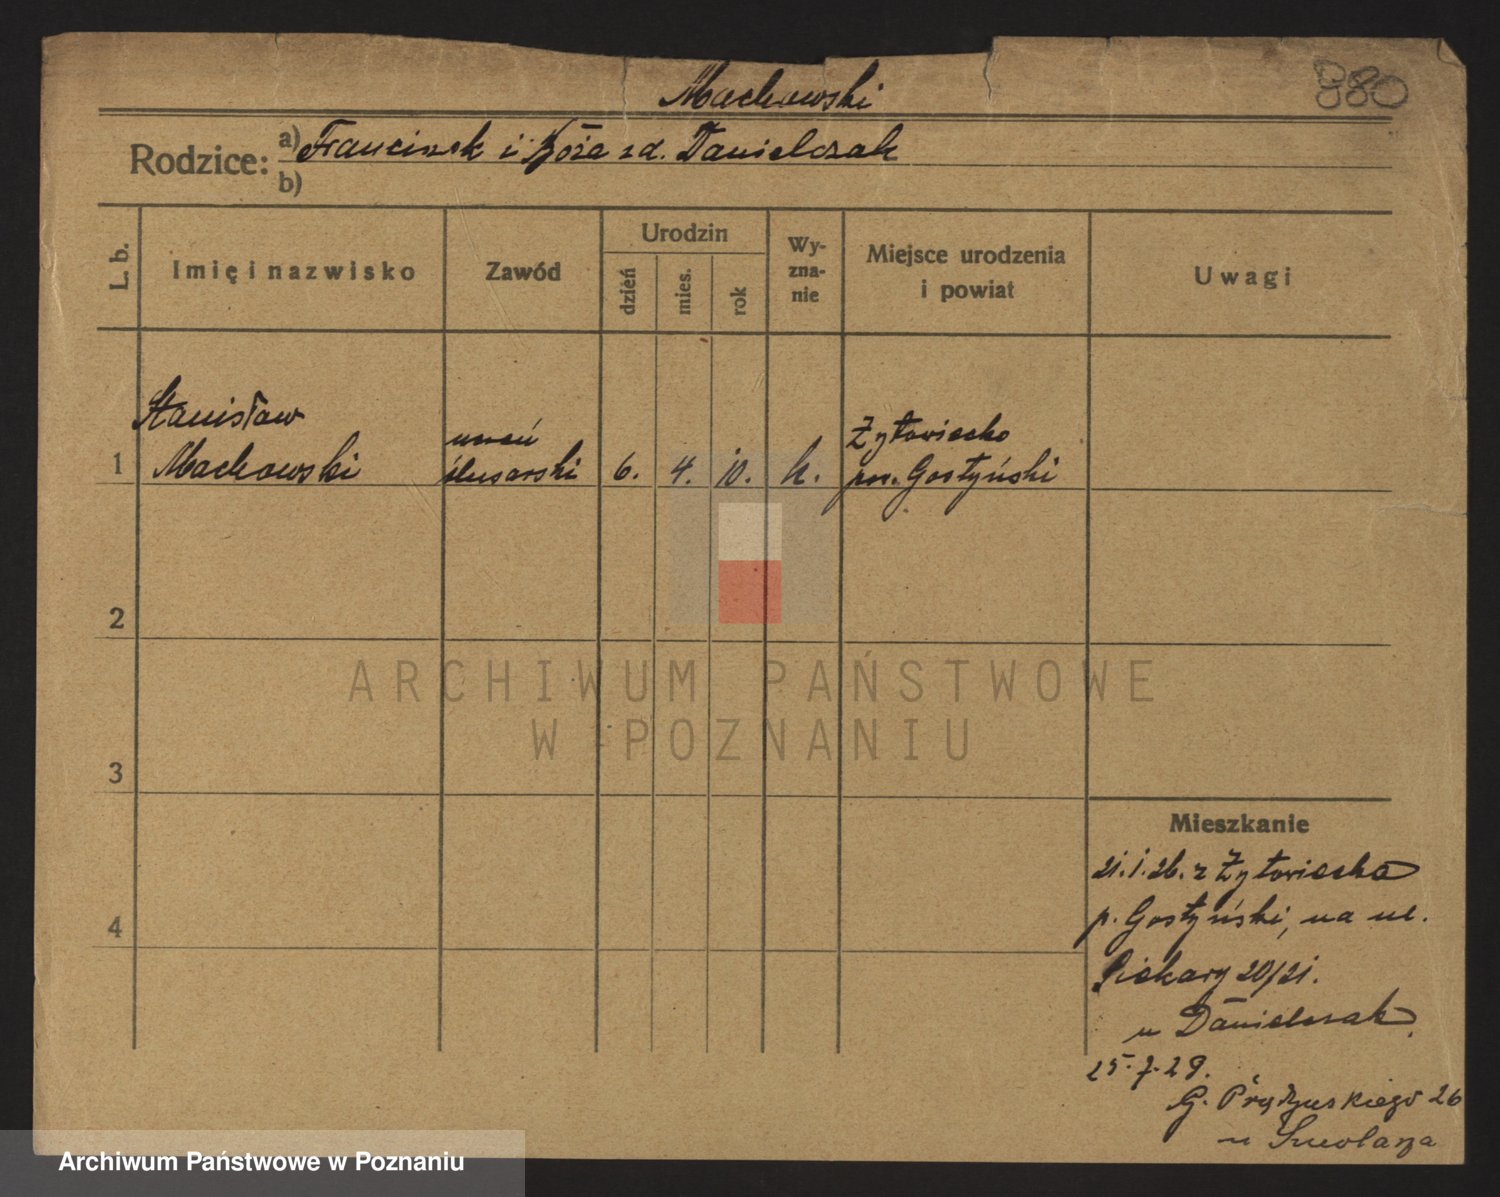 Machowski
880
Rodzice: a) Franciszek i Róża zd. Danielczak
b)
L. b.
Imię i nazwisko
Zawód
Urodzin
dzień
mies.
rok
Wy-
zna-
nie
Miejsce urodzenia
i powiat
Uwagi
Stanisław
uczeń
Żytowiecko
1 Machowski ślusarski 6. 4. 10. k. pow. Gostyński
2
ARCHIWUM PAŃSTWOWE
W POZNANIU
3
Mieszkanie
21.1.26. z Żytowiecka
p. Gostyński, na ul.
4
Piekary 20/21.
u Danielczak.
25.7.29.
G. Prądzyńskiego 26
u Smolarza
Archiwum Państwowe w Poznaniu